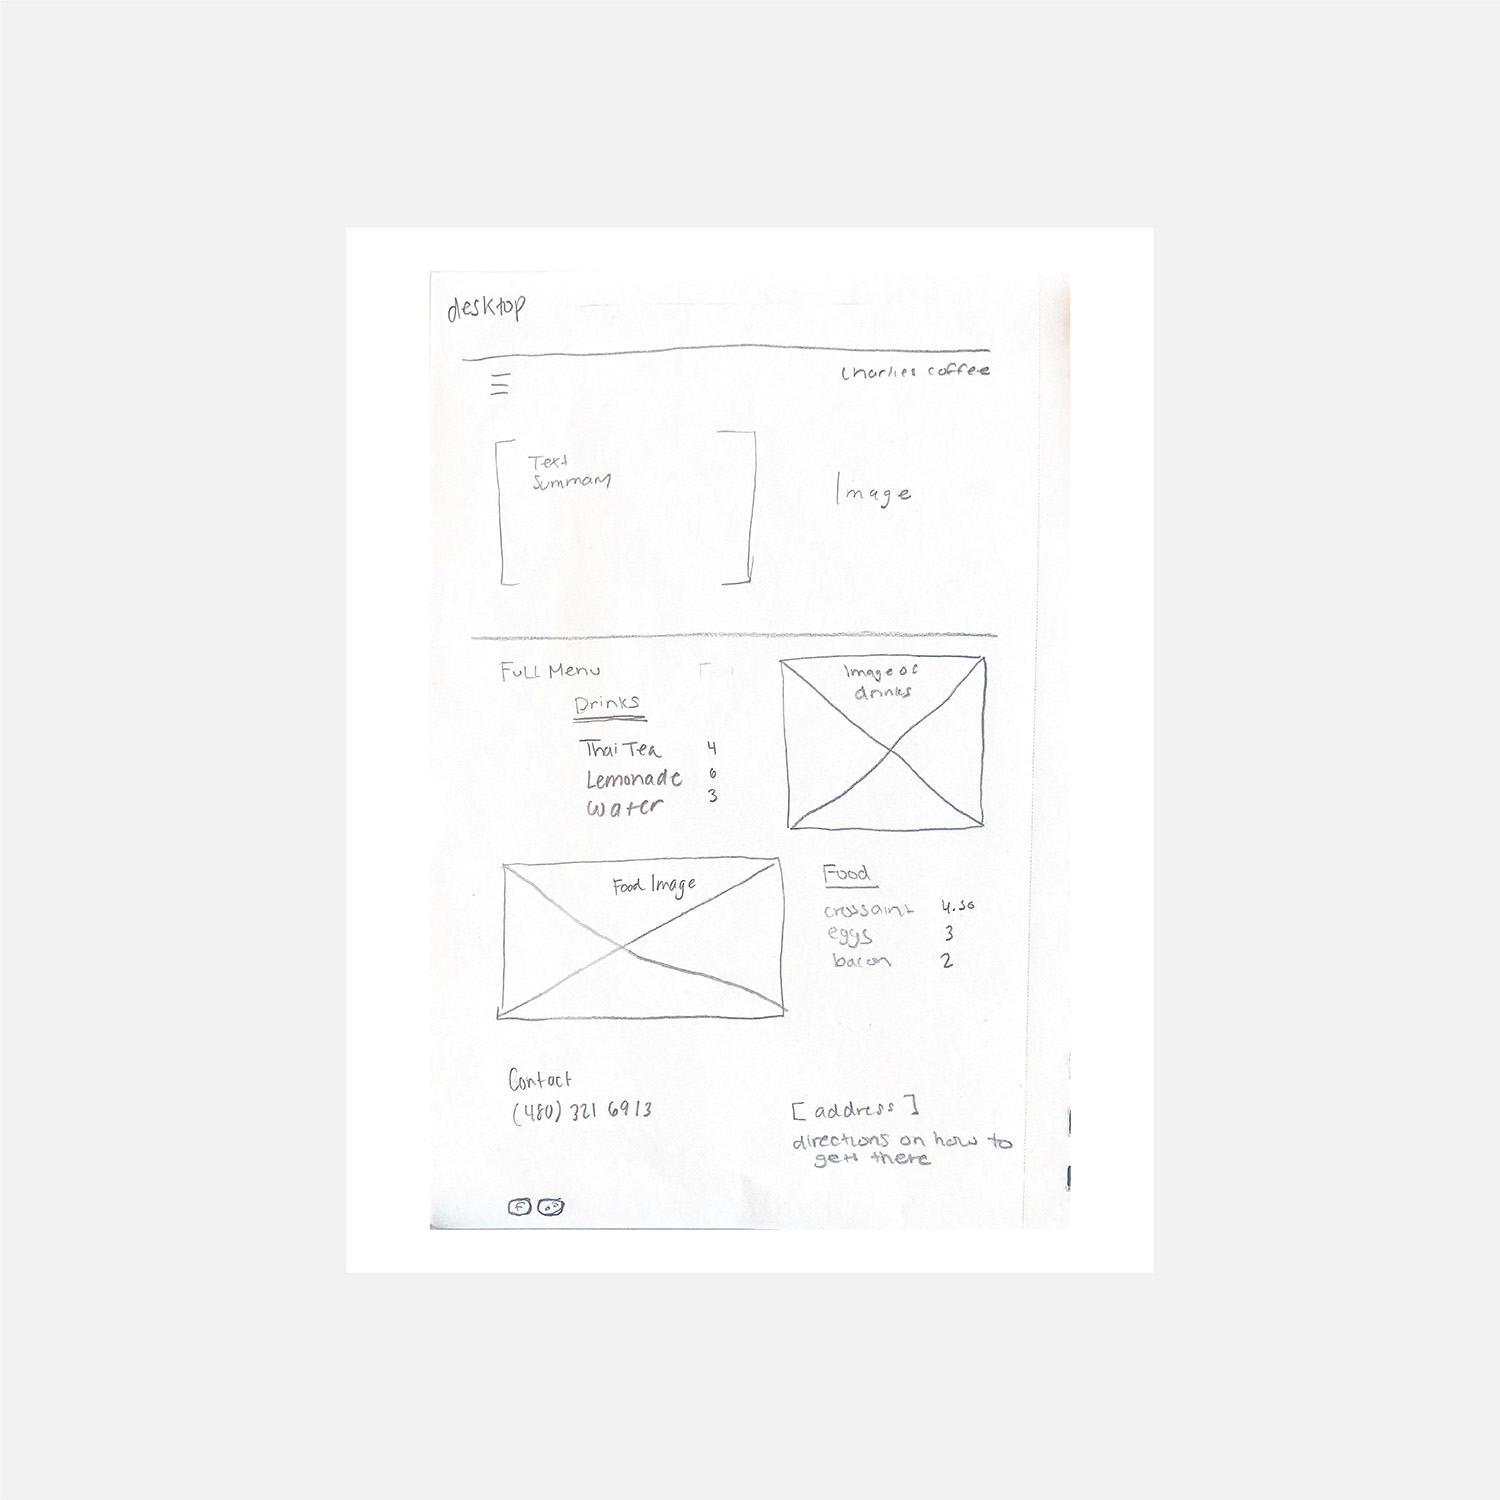 desktop
Charlies coffee
Text
Summary
Image
Full Menu
Drinks
Thai Tea 4
Lemonade 6
Water 3
Image of
drinks
Food Image
Food
crossaint 4.50
eggs 3
bacon 2
Contact
(480) 321 6913
[address]
directions on how to
get there
f